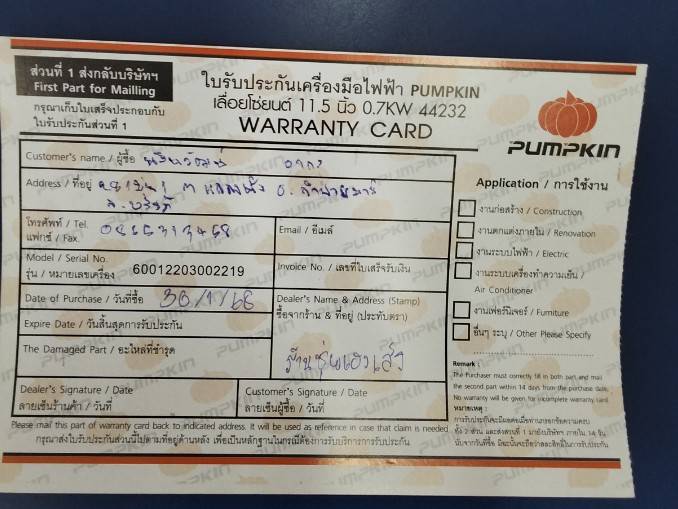 ส่วนที่ 1 ส่งกลับบริษัทฯ
First Part for Mailling
กรุณาเก็บใบเสร็จประกอบกับ
ใบรับประกันส่วนที่ 1
ใบรับประกันเครื่องมือไฟฟ้า PUMPKIN
เลื่อยโซ่ยนต์ 11.5 นิ้ว 0.7KW 44232
WARRANTY CARD
PUMPKIN
Customer's name / ผู้ซื้อ
Address / ที่อยู่
โทรศัพท์ / Tel.
แฟกซ์ / Fax.
Email / อีเมล์
Model / Serial No.
รุ่น / หมายเลขเครื่อง 60012203002219
Invoice No. / เลขที่ใบเสร็จรับเงิน
Date of Purchase / วันที่ซื้อ 30/1/68
Dealer's Name & Address (Stamp)
ซื้อจากร้าน & ที่อยู่ (ประทับตรา)
Expire Date / วันสิ้นสุดการรับประกัน
The Damaged Part / อะไหล่ที่ชำรุด
Dealer's Signature / Date
ลายเซ็นร้านค้า / วันที่
Customer's Signature / Date
ลายเซ็นผู้ซื้อ / วันที่
Application / การใช้งาน
งานก่อสร้าง / Construction
งานตกแต่งภายใน / Renovation
งานระบบไฟฟ้า / Electric
งานระบบเครื่องทำความเย็น /
Air Conditioner
งานเฟอร์นิเจอร์ / Furniture
อื่นๆ ระบุ / Other Please Specify
Remark :
The Purchaser must correctly fill in both part and mail
the second part within 14 days from the purchase date.
No warranty will be given for incomplete warranty card.
หมายเหตุ :
Please mail this part of warranty card back to indicated address. It will be used as reference in case that claim is needed.
กรุณาส่งใบรับประกันส่วนนี้ไปตามที่อยู่ด้านหลัง เพื่อเป็นหลักฐานในกรณีต้องการรับบริการการรับประกัน